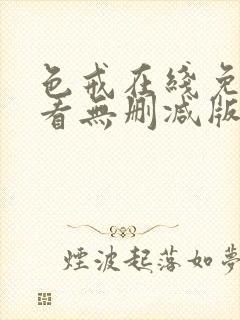 色戒在綫免
看無删减版
煙波起落如夢